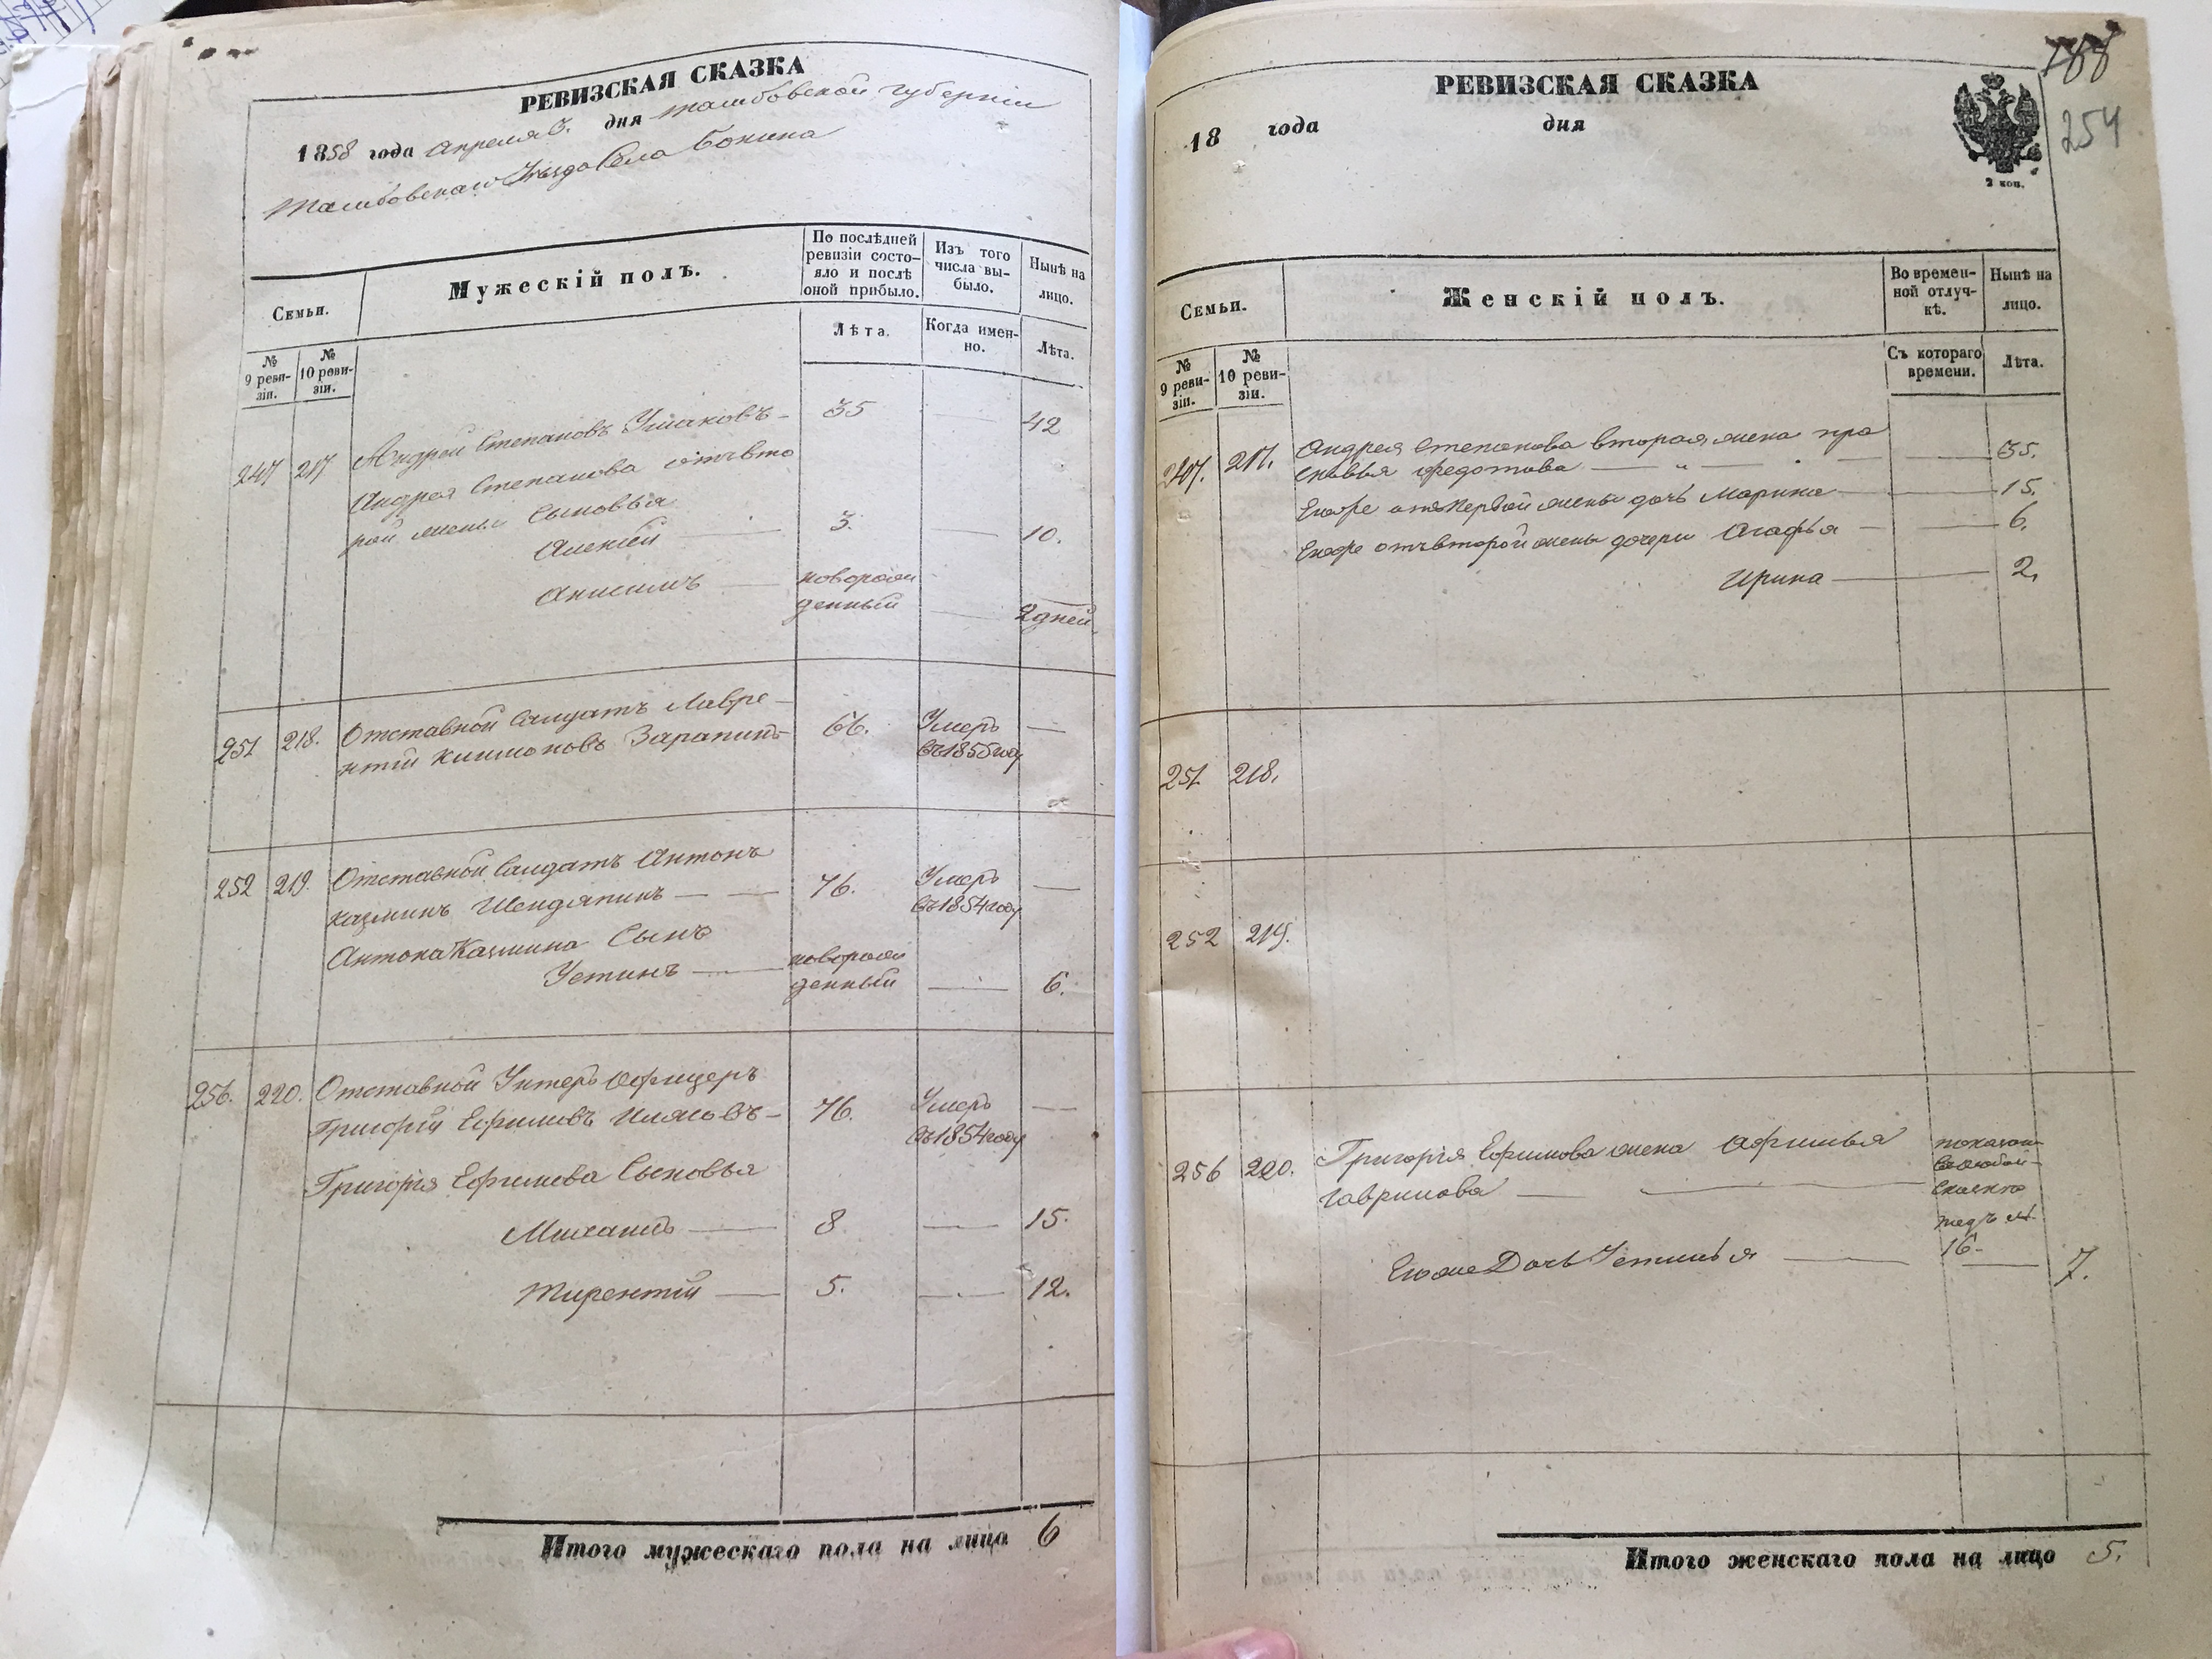 РЕВИЗСКАЯ СКАЗКА
1858 года Апреля дня Тамбовской губернии
Тамбовскаго Уѣзда Села Бокина
Семьи.
Мужескій полъ.
По послѣдней ревизіи состо-
яло и послѣ оной прибыло.
Изъ того числа вы-
было.
Нынѣ на лицо.
№ 9 реви-
зіи.
№ 10 реви-
зіи.
Лѣта.
Когда имен-
но.
Лѣта.
247 217 Андрей Степановъ Ушаковъ 35 — 42
Андрея Степанова отъ вто
рой жены Сыновья
Алексей — 3. — 10.
Анисимъ — новорож
денный — 2 дней.
251 218. Отставной Салдатъ Лавре-
нтій 66. Умеръ —
въ 1855 году
252 219. Отставной Салдатъ Антонъ
Казминъ — 76. Умеръ —
въ 1854 году
Антона Казмина Сынъ
Устинъ — новорож
денный — 6.
256. 220. Отставной Унтеръ Офицеръ
Григорій Ефимовъ 76. Умеръ —
въ 1854 году
Григорія Ефимова Сыновья
Михаилъ — 8. — 15.
Тирентій — 5. — 12.
Итого мужескаго пола на лицо 6
РЕВИЗСКАЯ СКАЗКА
18 года дня
188
254
2 коп.
Семьи.
Женскій полъ.
Во времен-
ной отлуч-
кѣ.
Нынѣ на лицо.
№ 9 реви-
зіи.
№ 10 реви-
зіи.
Съ котораго времени.
Лѣта.
247. 217. Андрея Степанова вторая жена пра
сковья Федотова — " — — 35.
Егоже отъ первой жены дочь Марина — 15.
Егоже отъ второй жены дочери Агафья — 6.
Ирина — 2.
251. 218.
252 219.
256 220. Григорія Ефимова жена Афимья
Гаврилова —
16.
Егоже Дочь Устинья — 7.
Итого женскаго пола на лицо 5.